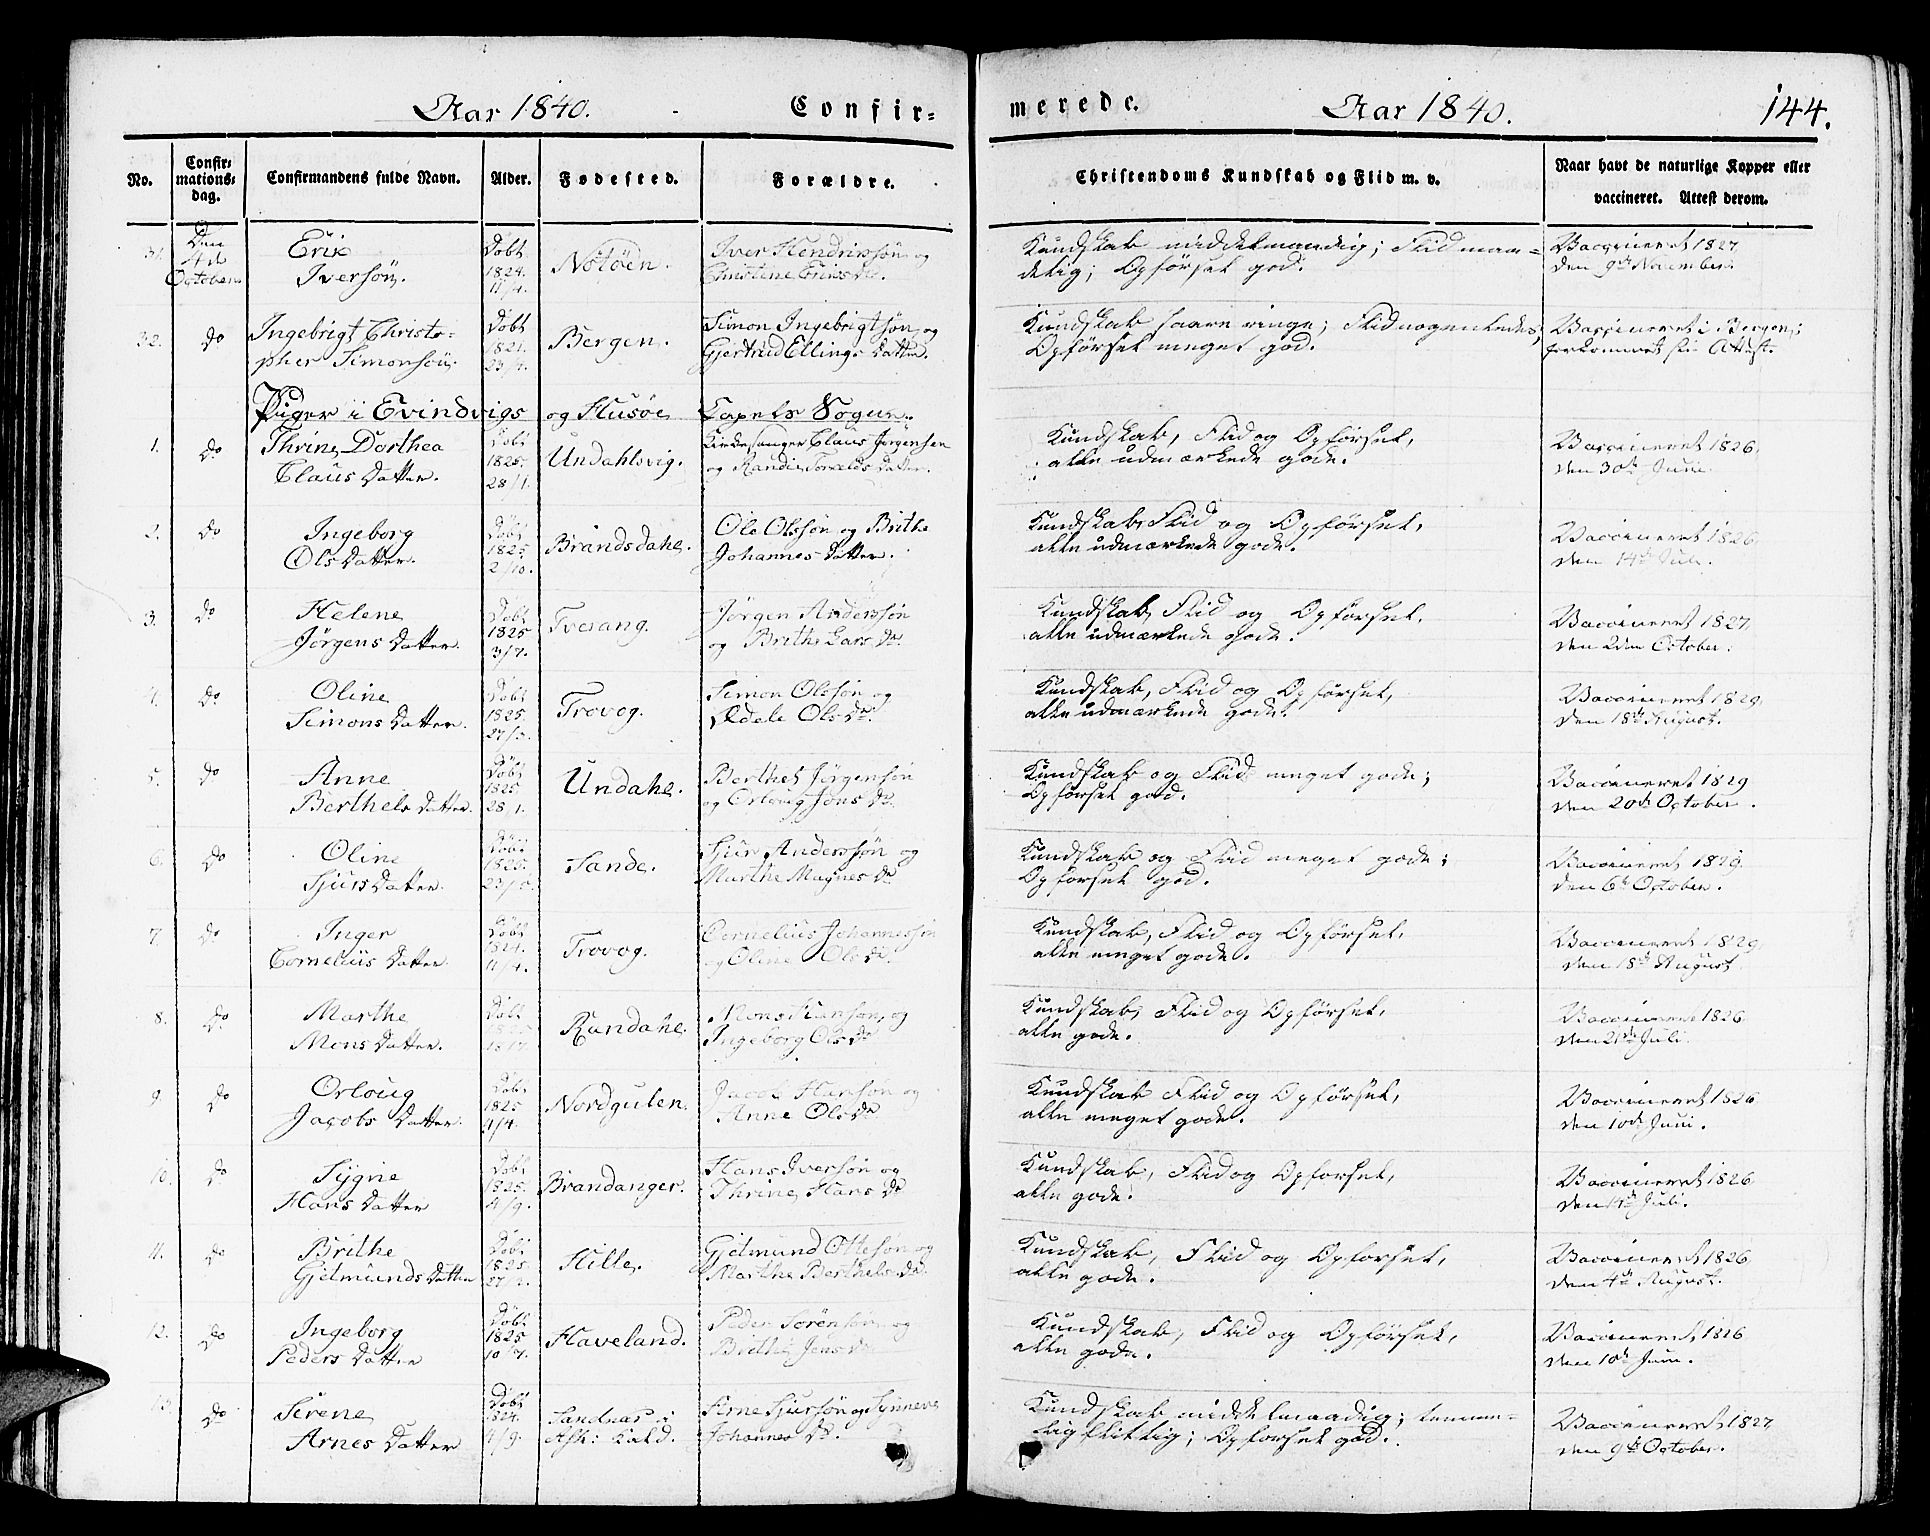 Aar 1840. Confir-
merede. Aar 1840. 144.
No. Confirmationsdag. Confirmandens fulde Navn. Alder. Fødested. Forældre.
Christendoms Kundskab og Flid m. v. Naar havt de naturlige Kopper eller vaccineret. Attest derom.
31. Den 4de October Erik Døbt 1824. 11/4. Notøen. Iver Hendriksøn og Kundskab middelmaadig; Flid maa= Vaccineret 1827
Iversøn. Christine Eriks Dr. delig; Opførsel god. den 9de November.
32. do Ingebrigt Christo= Døbt 1821. 23/4. Bergen. Simon Ingebrigtsøn og Kundskab saare ringe; Flid nogenledes; Vaccineret i Bergen;
pher Simonsøn. Gjertrud Ellings Datter. Opførsel meget god. forkommet sin Attest.
Piger i Evindvigs og Husøe Capels Sogne.
1. do Thrine Dorthea Døbt 1825. 28/1. Undahlsvig. Kirkesanger Claus Jørgensen Kundskab, Flid og Opførsel, Vaccineret 1826
Claus Datter. og Randie Torvalds Datter. alle udmærkede gode. den 30te Juni.
2. do Ingeborg Døbt 1825 2/10. Brandsdahl. Ole Olssøn og Brithe Kundskab, Flid og Opførsel, Vaccineret 1826
Ols Datter. Johannes Datter. alle udmærkede gode. den 14de Juli.
3. do Helene Døbt 1825 3/7. Tvesang. Jørgen Anderssøn Kundskab, Flid og Opførsel, Vaccineret 1827
Jørgens Datter. og Brithe Lars Dr. alle udmærkede gode. den 2den October.
4. do Oline Døbt 1825. 27/3. Trovog. Simon Olssøn og Kundskab, Flid og Opførsel, Vaccineret 1829
Simons Datter. Ædele Ols Dr. alle udmærkede gode. den 18de August.
5. do Anne Døbt 1825 28/1. Undahl. Berthel Jørgensøn Kundskab og Flid meget gode; Vaccineret 1829
Berthels Datter. og Orloug Jons Dr. Opførsel god. den 20de October.
6. do Oline Døbt 1825. Sande. Sjur Anderssøn og Kundskab og Flid meget gode; Vaccineret 1829.
Sjurs Datter. Marthe Magnes Dr. Opførsel god. den 6te October.
7. do Inger Døbt 1824. 11/4. Trovog. Cornelius Johannessøn Kundskab, Flid og Opførsel, Vaccineret 1829
Cornelius Datter. og Oline Ols Dr. alle meget gode. den 18de August
8. do Marthe Døbt Randahl. Mons og Kundskab, Flid og Opførsel, Vaccineret 1826
Mons Datter. Ingeborg Ols Dr. alle gode. den 21de Juli.
9. do Orloug Døbt 1825 4/4. Nordgulen. Jacob Hansøn og Kundskab Flid og Opførsel, Vaccineret 1826
Jacobs Datter. Anne Ols Dr. alle meget gode. den 10de Juni.
10. do Sygne Døbt 1825. 4/9. Brandanger. Hans Iversøn og Kundskab, Flid og Opførsel, Vaccineret 1826
Hans Datter Thrine Hans Dr. alle gode. den 14de Juli.
11. do Brithe Døbt 1825. 27/2. Hille. Gjelmund Ottesøn og Kundskab, Flid og Opførsel, Vaccineret 1826
Gjelmunds Datter Marthe Berthels Dr. alle gode. den 4de August.
12. do Ingeborg Døbt 1825 10/7. Haveland. Peder Sørensøn og Kundskab, Flid og Opførsel, Vaccineret 1826
Peders Datter Brithe Jens Dr. alle gode. den 10de Juni.
13. do Sirene Døbt 1824. 4/9. Sandnæs i Arne Sjursøn og Synneve Kundskab middelmaadig; temme= Vaccineret 1827
Arnes Datter Ask: Kald. Johannes Dr. lig flittig; Opførsel god. den 9de October.